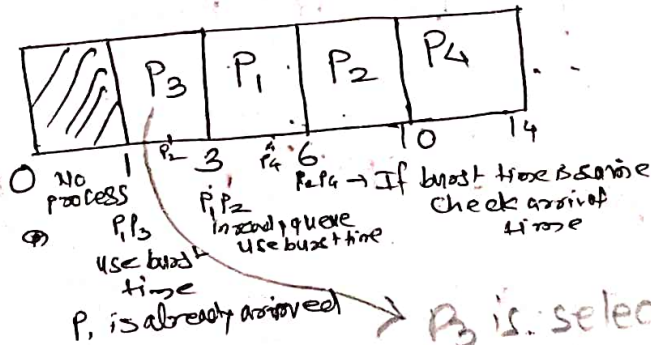 P3 P1 P2 P4
0 1 P2 3 P4 6 10 14
No process
P1P3 use burst time
P1 P2 in ready queue use burst time
P2P4 → If burst time is same check arrival time
P1 is already arrived
P3 is selec